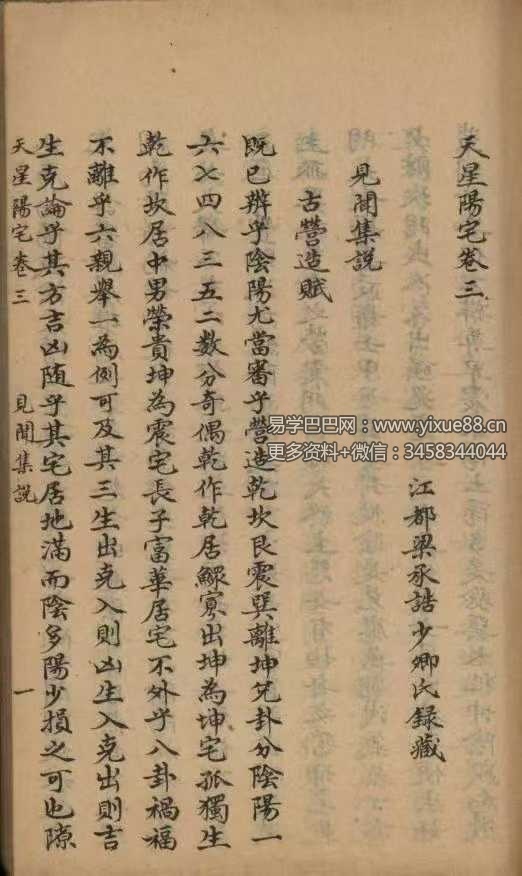 天星陽宅卷三
江都梁承誥少卿氏録藏
見聞集說
古營造賦
既已辨乎陰陽尤當審乎營造乾坎艮震巽離坤兌卦分陰陽一
六七四八三五二數分奇偶乾作乾居鰥寡出坤為坤宅孤獨生
乾作坎居中男榮貴坤為震宅長子富華居宅不外乎八卦禍福
不離乎六親舉一為例可及其三生出克入則凶生入克出則吉
生克論乎其方吉凶随乎其宅居地滿而陰多陽少損之可也隙
天星陽宅卷三 見聞集說 一
易学巴巴网：www.yixue88.cn
更多资料+微信：3458344044